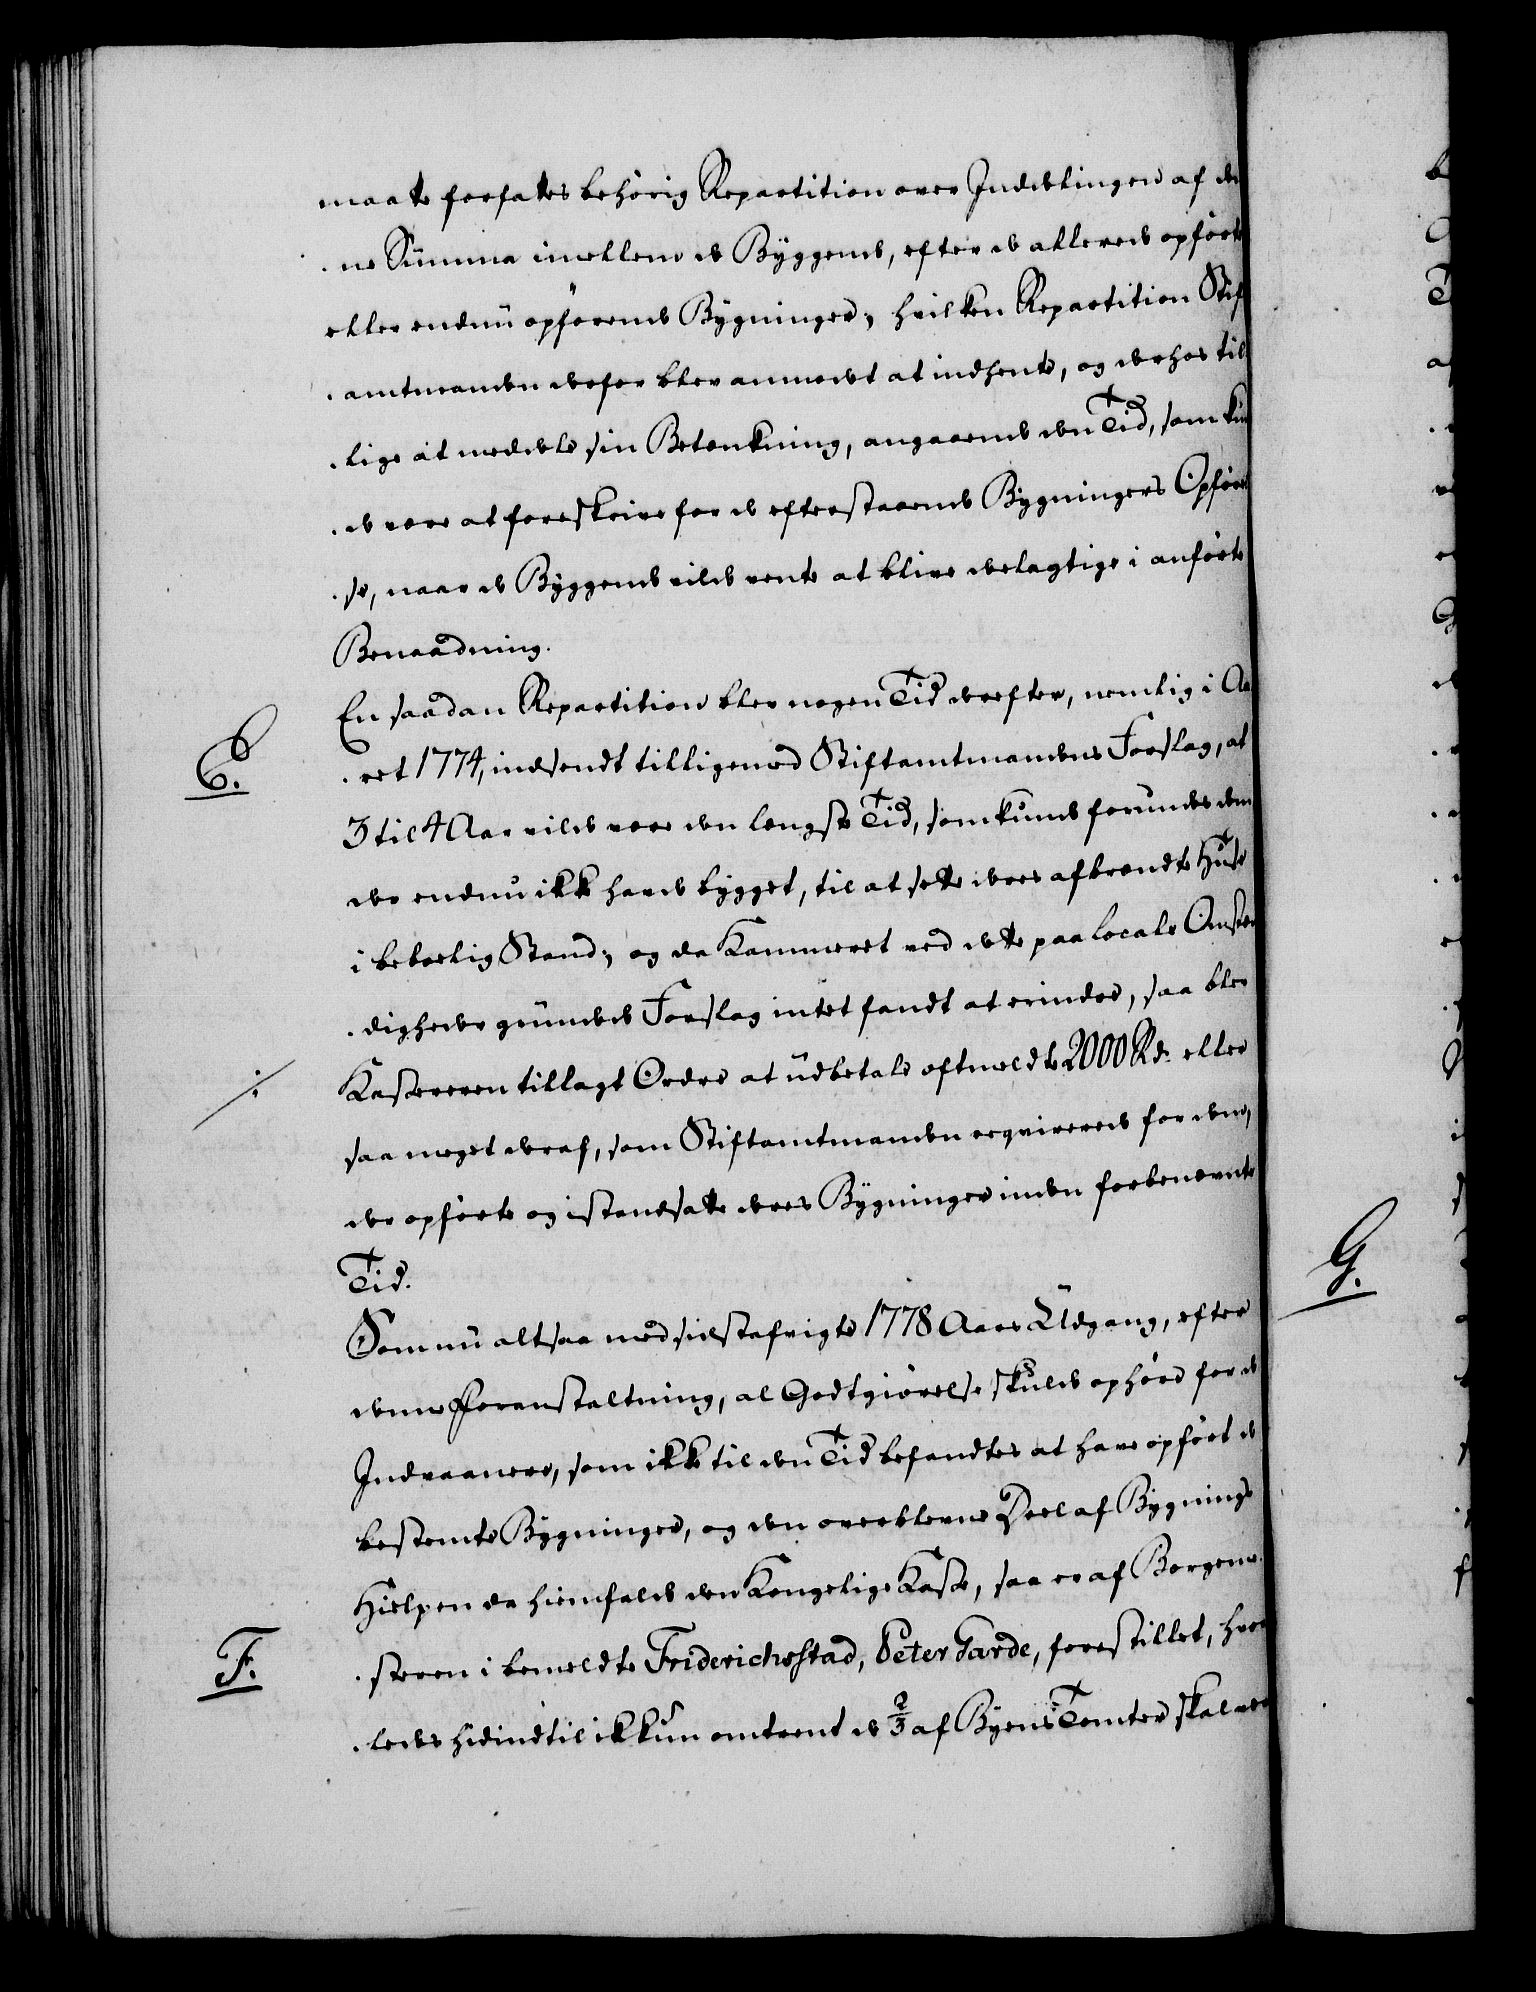 maatte forfattes behörig Repartition over Inddelingen af den
ne Summa imellem de Byggende, efter de allerede opförte
eller endnu opförende Bygninger; hvilken Repartition Stif
amtmanden derfor blev anmodet at indhente, og derhos til
lige at meddele sin Betænkning, angaaende den Tid, som kun
de være at foreskrive for de efterstaaende Bygningers Opförel
se, naar de Byggende vilde vente at blive deelagtige i anförte
Benaadning.
E. En saadan Repartition blev nogen Tid derefter, nemlig i Aa
ret 1774, indsendt tilligemed Stiftamtmandens Forslag, at
3 til 4 Aar vilde være den længste Tid, som kunde forundes dem
der endnu ikke havde bygget, til at sætte deres afbrændte Huse
i beboelig Stand; og da Kammeret ved dette paa locale Omstæn
digheder grundede Forslag intet fandt at erindre, saa blev
Kassereren tillagt Ordre at udbetale oftmeldte 2000 Rd. eller
saa meget deraf, som Stiftamtmanden reqvirerede for dem,
der opförte og istandsatte deres Bygninger inden forbenævnte
Tid.
Som nu altsaa med sidstafvigte 1778 Aars Udgang, efter
denne Foranstaltning, al Godtgiörelse skulde ophöre for de
Indvaanere, som ikke til den Tid befandtes at have opfört de
bestemte Bygninger, og den overblevne Deel af Bygnings
Hielpen da hiemfalde den Kongelige Kasse, saa er af Borgeme
F. steren i bemeldte Friderichsstad, Peter Garde, forestillet, hvor
ledes hidindtil ikkun omtrent de 2/3 af Byens Tomter skal være
G.